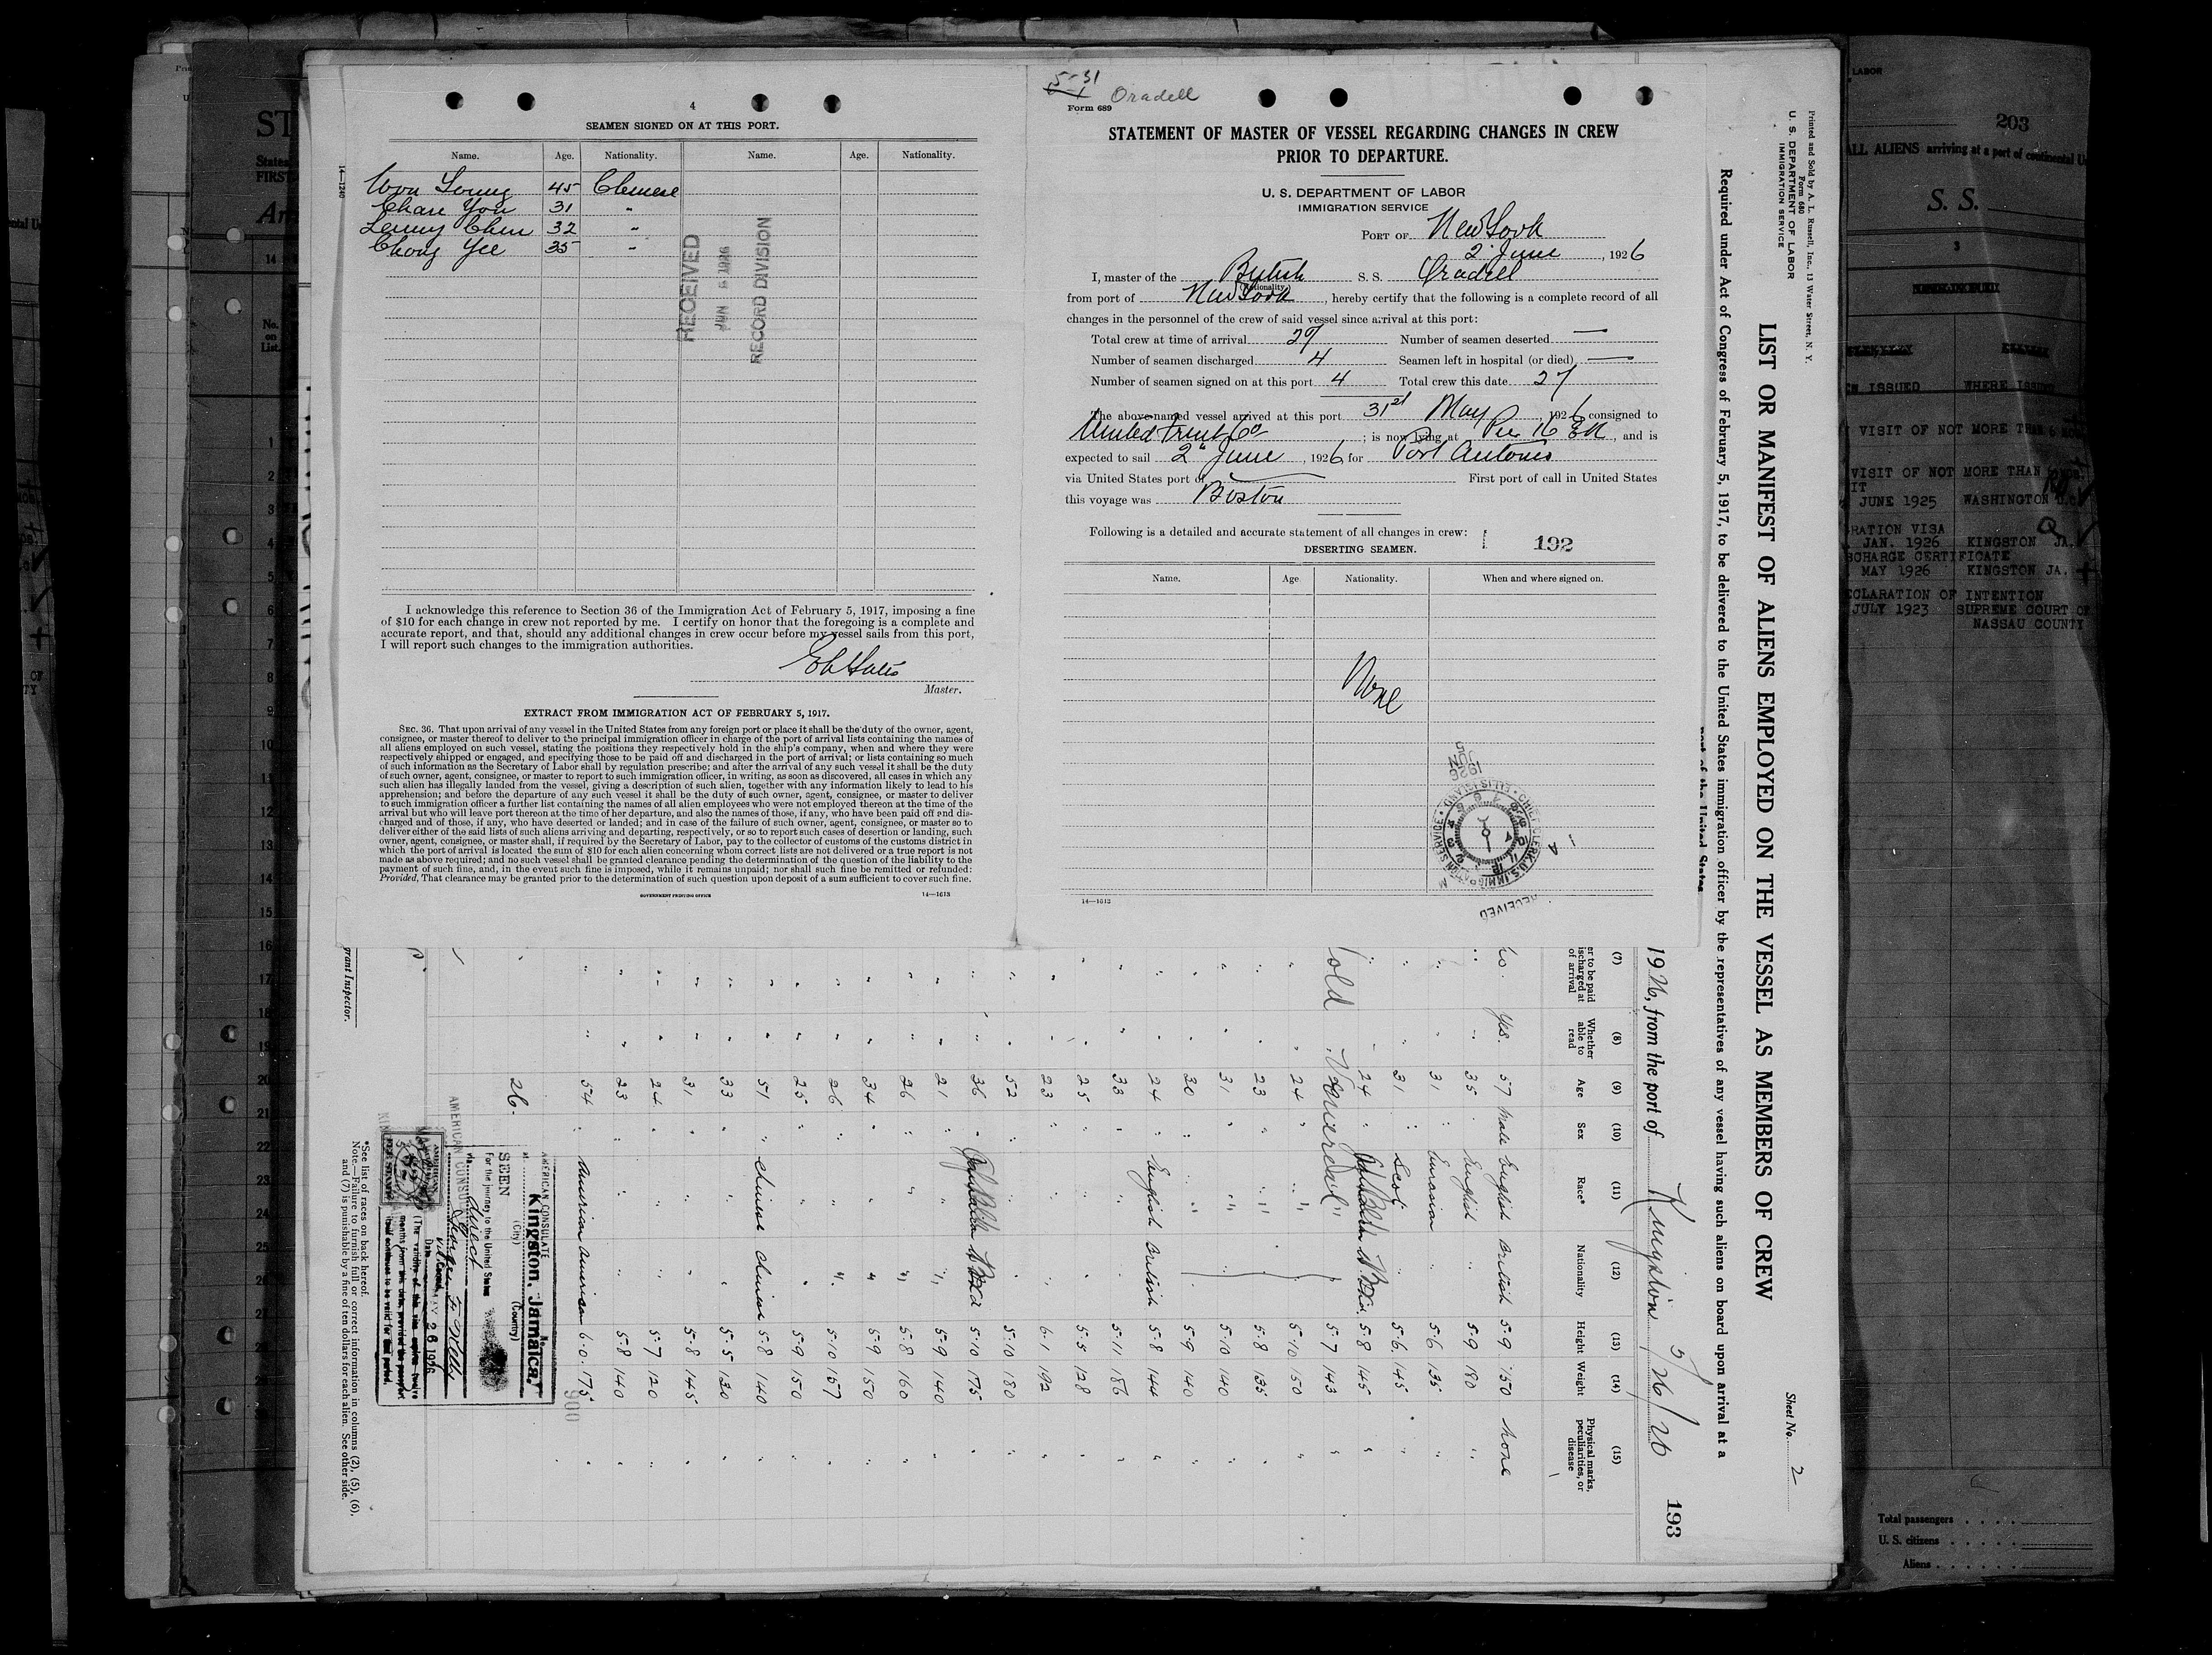 4
SEAMEN SIGNED ON AT THIS PORT.
Name. Age. Nationality. Name. Age. Nationality.
Won Young 45 Chinese
Chan You 31 "
Lenny Chen 32 "
Chong Yee 35 "
RECEIVED
JUN 5 1926
RECORD DIVISION
14—1240
I acknowledge this reference to Section 36 of the Immigration Act of February 5, 1917, imposing a fine
of $10 for each change in crew not reported by me. I certify on honor that the foregoing is a complete and
accurate report, and that, should any additional changes in crew occur before my vessel sails from this port,
I will report such changes to the immigration authorities.
Master.
EXTRACT FROM IMMIGRATION ACT OF FEBRUARY 5, 1917.
SEC. 36. That upon arrival of any vessel in the United States from any foreign port or place it shall be the duty of the owner, agent,
consignee, or master thereof to deliver to the principal immigration officer in charge of the port of arrival lists containing the names of
all aliens employed on such vessel, stating the positions they respectively hold in the ship's company, when and where they were
respectively shipped or engaged, and specifying those to be paid off and discharged in the port of arrival; or lists containing so much
of such information as the Secretary of Labor shall by regulation prescribe; and after the arrival of any such vessel it shall be the duty
of such owner, agent, consignee, or master to report to such immigration officer, in writing, as soon as discovered, all cases in which any
such alien has illegally landed from the vessel, giving a description of such alien, together with any information likely to lead to his
apprehension; and before the departure of any such vessel it shall be the duty of such owner, agent, consignee, or master to deliver
to such immigration officer a further list containing the names of all alien employees who were not employed thereon at the time of the
arrival but who will leave port thereon at the time of her departure, and also the names of those, if any, who have been paid off and dis-
charged and of those, if any, who have deserted or landed; and in case of the failure of such owner, agent, consignee, or master so to
deliver either of the said lists of such aliens arriving and departing, respectively, or so to report such cases of desertion or landing, such
owner, agent, consignee, or master shall, if required by the Secretary of Labor, pay to the collector of customs of the customs district in
which the port of arrival is located the sum of $10 for each alien concerning whom correct lists are not delivered or a true report is not
made as above required; and no such vessel shall be granted clearance pending the determination of the question of the liability to the
payment of such fine, and, in the event such fine is imposed, while it remains unpaid; nor shall such fine be remitted or refunded:
Provided, That clearance may be granted prior to the determination of such question upon deposit of a sum sufficient to cover such fine.
GOVERNMENT PRINTING OFFICE 14—1613
5-31
Oradell
Form 689
STATEMENT OF MASTER OF VESSEL REGARDING CHANGES IN CREW
PRIOR TO DEPARTURE.
U. S. DEPARTMENT OF LABOR
IMMIGRATION SERVICE
PORT OF New York
2 June, 1926
I, master of the British S. S. Oradell
(Nationality.)
from port of New York, hereby certify that the following is a complete record of all
changes in the personnel of the crew of said vessel since arrival at this port:
Total crew at time of arrival 27 Number of seamen deserted —
Number of seamen discharged 4 Seamen left in hospital (or died) —
Number of seamen signed on at this port 4 Total crew this date 27
The above-named vessel arrived at this port 31st May, 1926 consigned to
United Fruit Co; is now lying at Pier 16 ER, and is
expected to sail 2 June, 1926, for Port Antonio
via United States port of — First port of call in United States
this voyage was Boston
Following is a detailed and accurate statement of all changes in crew:
192
DESERTING SEAMEN.
Name. Age. Nationality. When and where signed on.
None
1926
JUN
5
CHIEF CLERK, U.S. IMMIGRATION SERVICE · ELLIS ISLAND
RECEIVED
14—1613
Printed and Sold by A. L. Russell, Inc., 13 Water Street, N. Y.
Form 680
U. S. DEPARTMENT OF LABOR
IMMIGRATION SERVICE
Sheet No. 2
LIST OR MANIFEST OF ALIENS EMPLOYED ON THE VESSEL AS MEMBERS OF CREW
Required under Act of Congress of February 5, 1917, to be delivered to the United States immigration officer by the representatives of any vessel having such aliens on board upon arrival at a
port of the United States
193
1926, from the port of Kingston 5/26/26
(7) (8) (9) (10) (11) (12) (13) (14) (15)
er to be paid
ischarged at
of arrival
Whether able to read
Age
Sex
Race*
Nationality
Height
Weight
Physical marks, peculiarities, or disease
no. Yes. 57 Male English British 5-9 150 None
" " 35 " English " 5-9 180 "
" " 31 " Eurasian " 5-6 135 "
" " 31 " Scot " 5-6 145 "
" " 24 " 5-8 145 "
5-7 143 "
" " 24 " " " 5-10 150 "
" " 23 " " " 5-8 135 "
" " 31 " " " 5-10 140 "
" " 30 " " " 5-9 140 "
" " 24 " English British 5-8 144 "
" " 33 " " " 5-11 186 "
" " 25 " " " 5-5 128 "
" " 23 " " " 6-1 192 "
" " 52 " " " 5-10 180 "
" " 36 " 5-10 175 "
" " 21 " " " 5-9 140 "
" " 26 " " " 5-8 160 "
" " 34 " " " 5-9 150 "
" " 26 " " " 5-10 157 "
" " 25 " " " 5-9 150 "
" " 51 " Chinese Chinese 5-8 140 "
" " 33 " " " 5-5 130 "
" " 31 " " " 5-8 145 "
" " 24 " " " 5-7 120 "
" " 23 " " " 5-8 140 "
" " 54 " American American 6-0 175 "
26.
900
AMERICAN CONSULATE
at Kingston, Jamaica,
(City) (Country)
SEEN
For the journey to the United States
via direct
AMERICAN CONSUL
Date MAY 26 1926
(The validity of this visa expires twelve
months from this date, provided the passport
continues to be valid for that period.
grant Inspector.
*See list of races on back hereof.
Note.—Failure to furnish full or correct information in columns (2), (5), (6),
and (7) is punishable by a fine of ten dollars for each alien. See other side.
LABOR
203
ALL ALIENS arriving at a port of continental U
S. S.
3
ISSUED WHERE ISSUED
VISIT OF NOT MORE THAN 6 MO
VISIT OF NOT MORE THAN
IT
JUNE 1925 WASHINGTON D.C.
RATION VISA
JAN. 1926 KINGSTON JA.
SCHARGE CERTIFICATE
MAY 1926 KINGSTON JA.
ECLARATION OF INTENTION
JULY 1923 SUPREME COURT OF
NASSAU COUNTY
Total passengers
U. S. citizens
Aliens
ST
States
FIRST
Ar
14
No.
on
List.
1
2
3
4
5
6
7
8
9
10
11
12
13
14
15
16
17
18
19
20
21
22
23
24
25
26
27
28